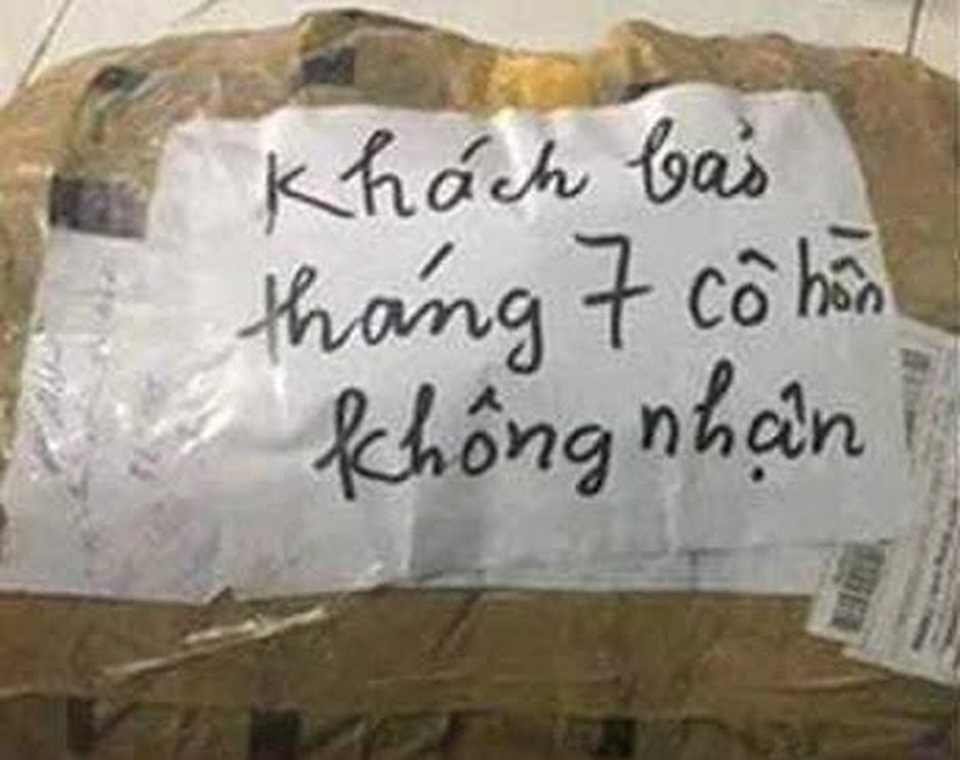 Khách bảo
tháng 7 cô hồn
không nhận